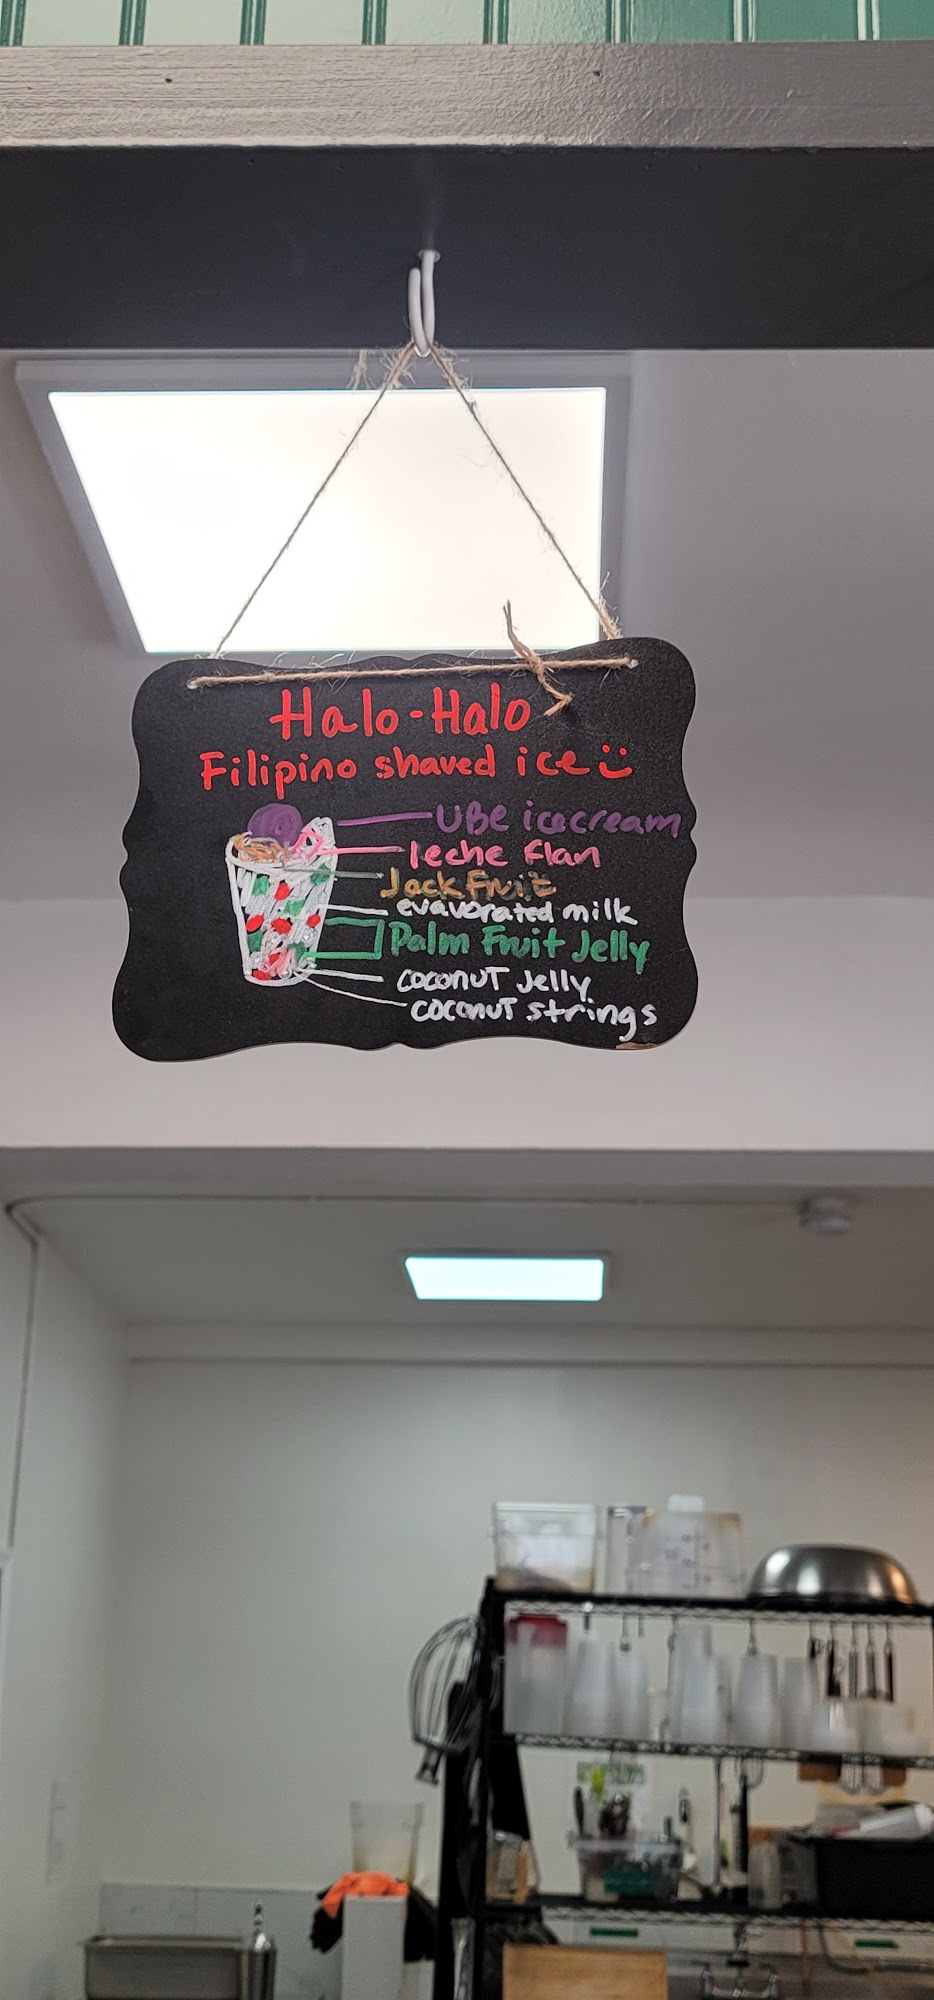 Halo-Halo
Filipino shaved ice :)
UBE icecream
leche flan
Jackfruit
evavorated milk
Palm Fruit Jelly
coconut Jelly
coconut strings